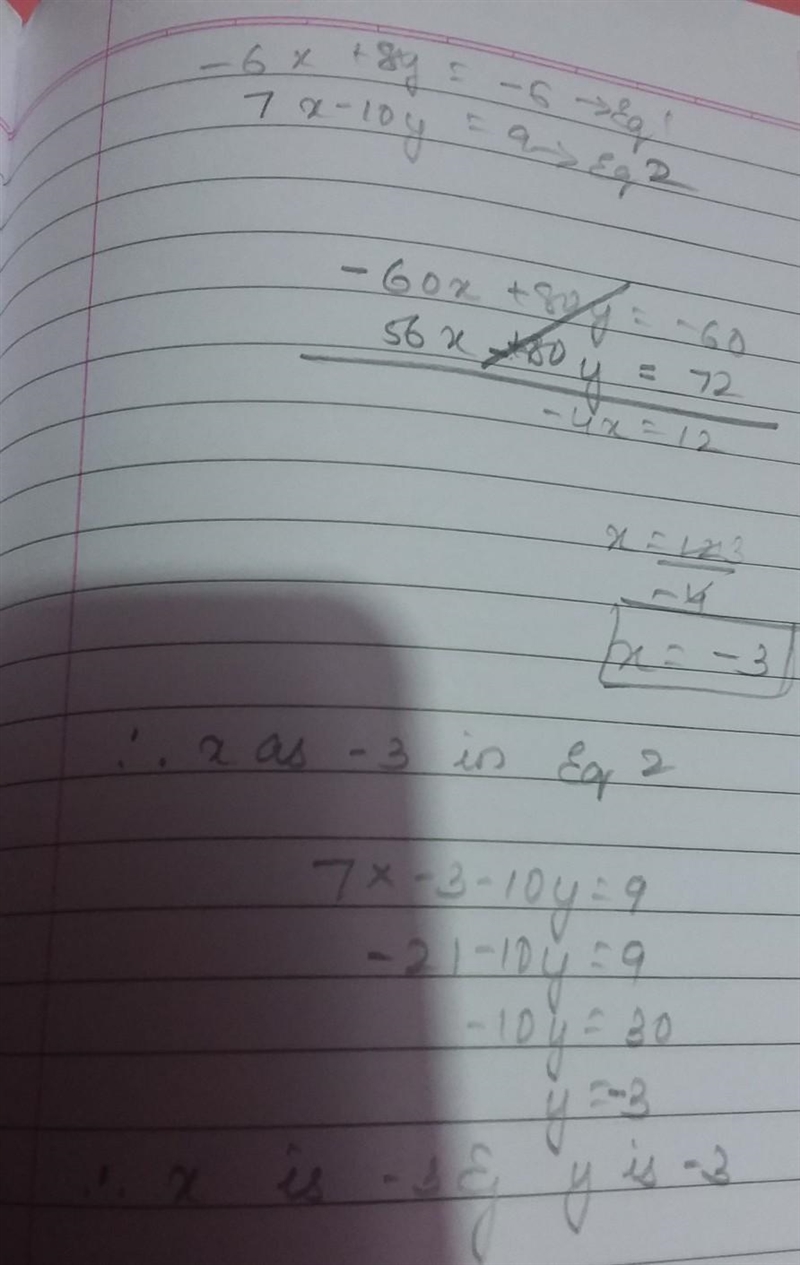 -6x +8y = -6 → Eq 1
7x-10y = 9 → Eq 2
-60x +80y = -60
56x -80y = 72
-4x = 12
x = 12 3
-4
x = -3
∴ x as -3 in Eq 2
7x -3-10y=9
-21-10y=9
-10y=30
y=-3
∴ x is -3 & y is -3